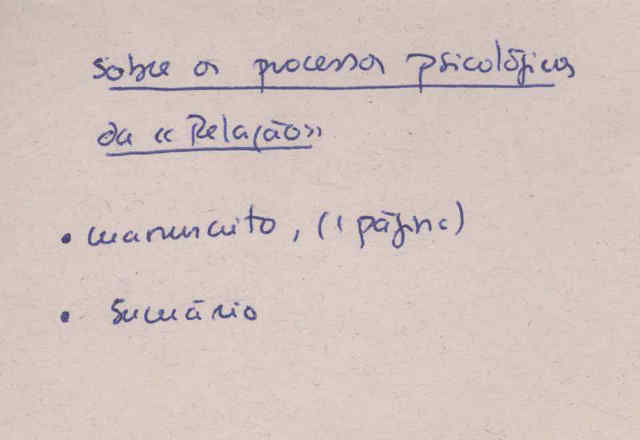 Sobre os processos psicológicos
da «Relação»
• manuscrito, (1 página)
• Sumário